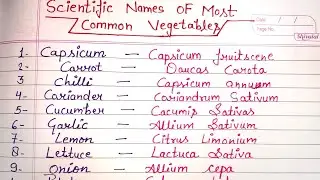 Scientific Names Of Most
Common Vegetables
Date / /
Page No.
Shivalal
1- Capsicum — Capsicum fruitscene
2- Carrot — Daucas Carota
3- Chilli — Capsicum annum
4- Cariander — Cariandrum Sativum
5- Cucumber — Cucumis Sativas
6- Garlic — Allium Sativum
7- Lemon — Citrus Limonium
8- Lettuce — Lactuca Sativa
9- Onion — Allium cepa